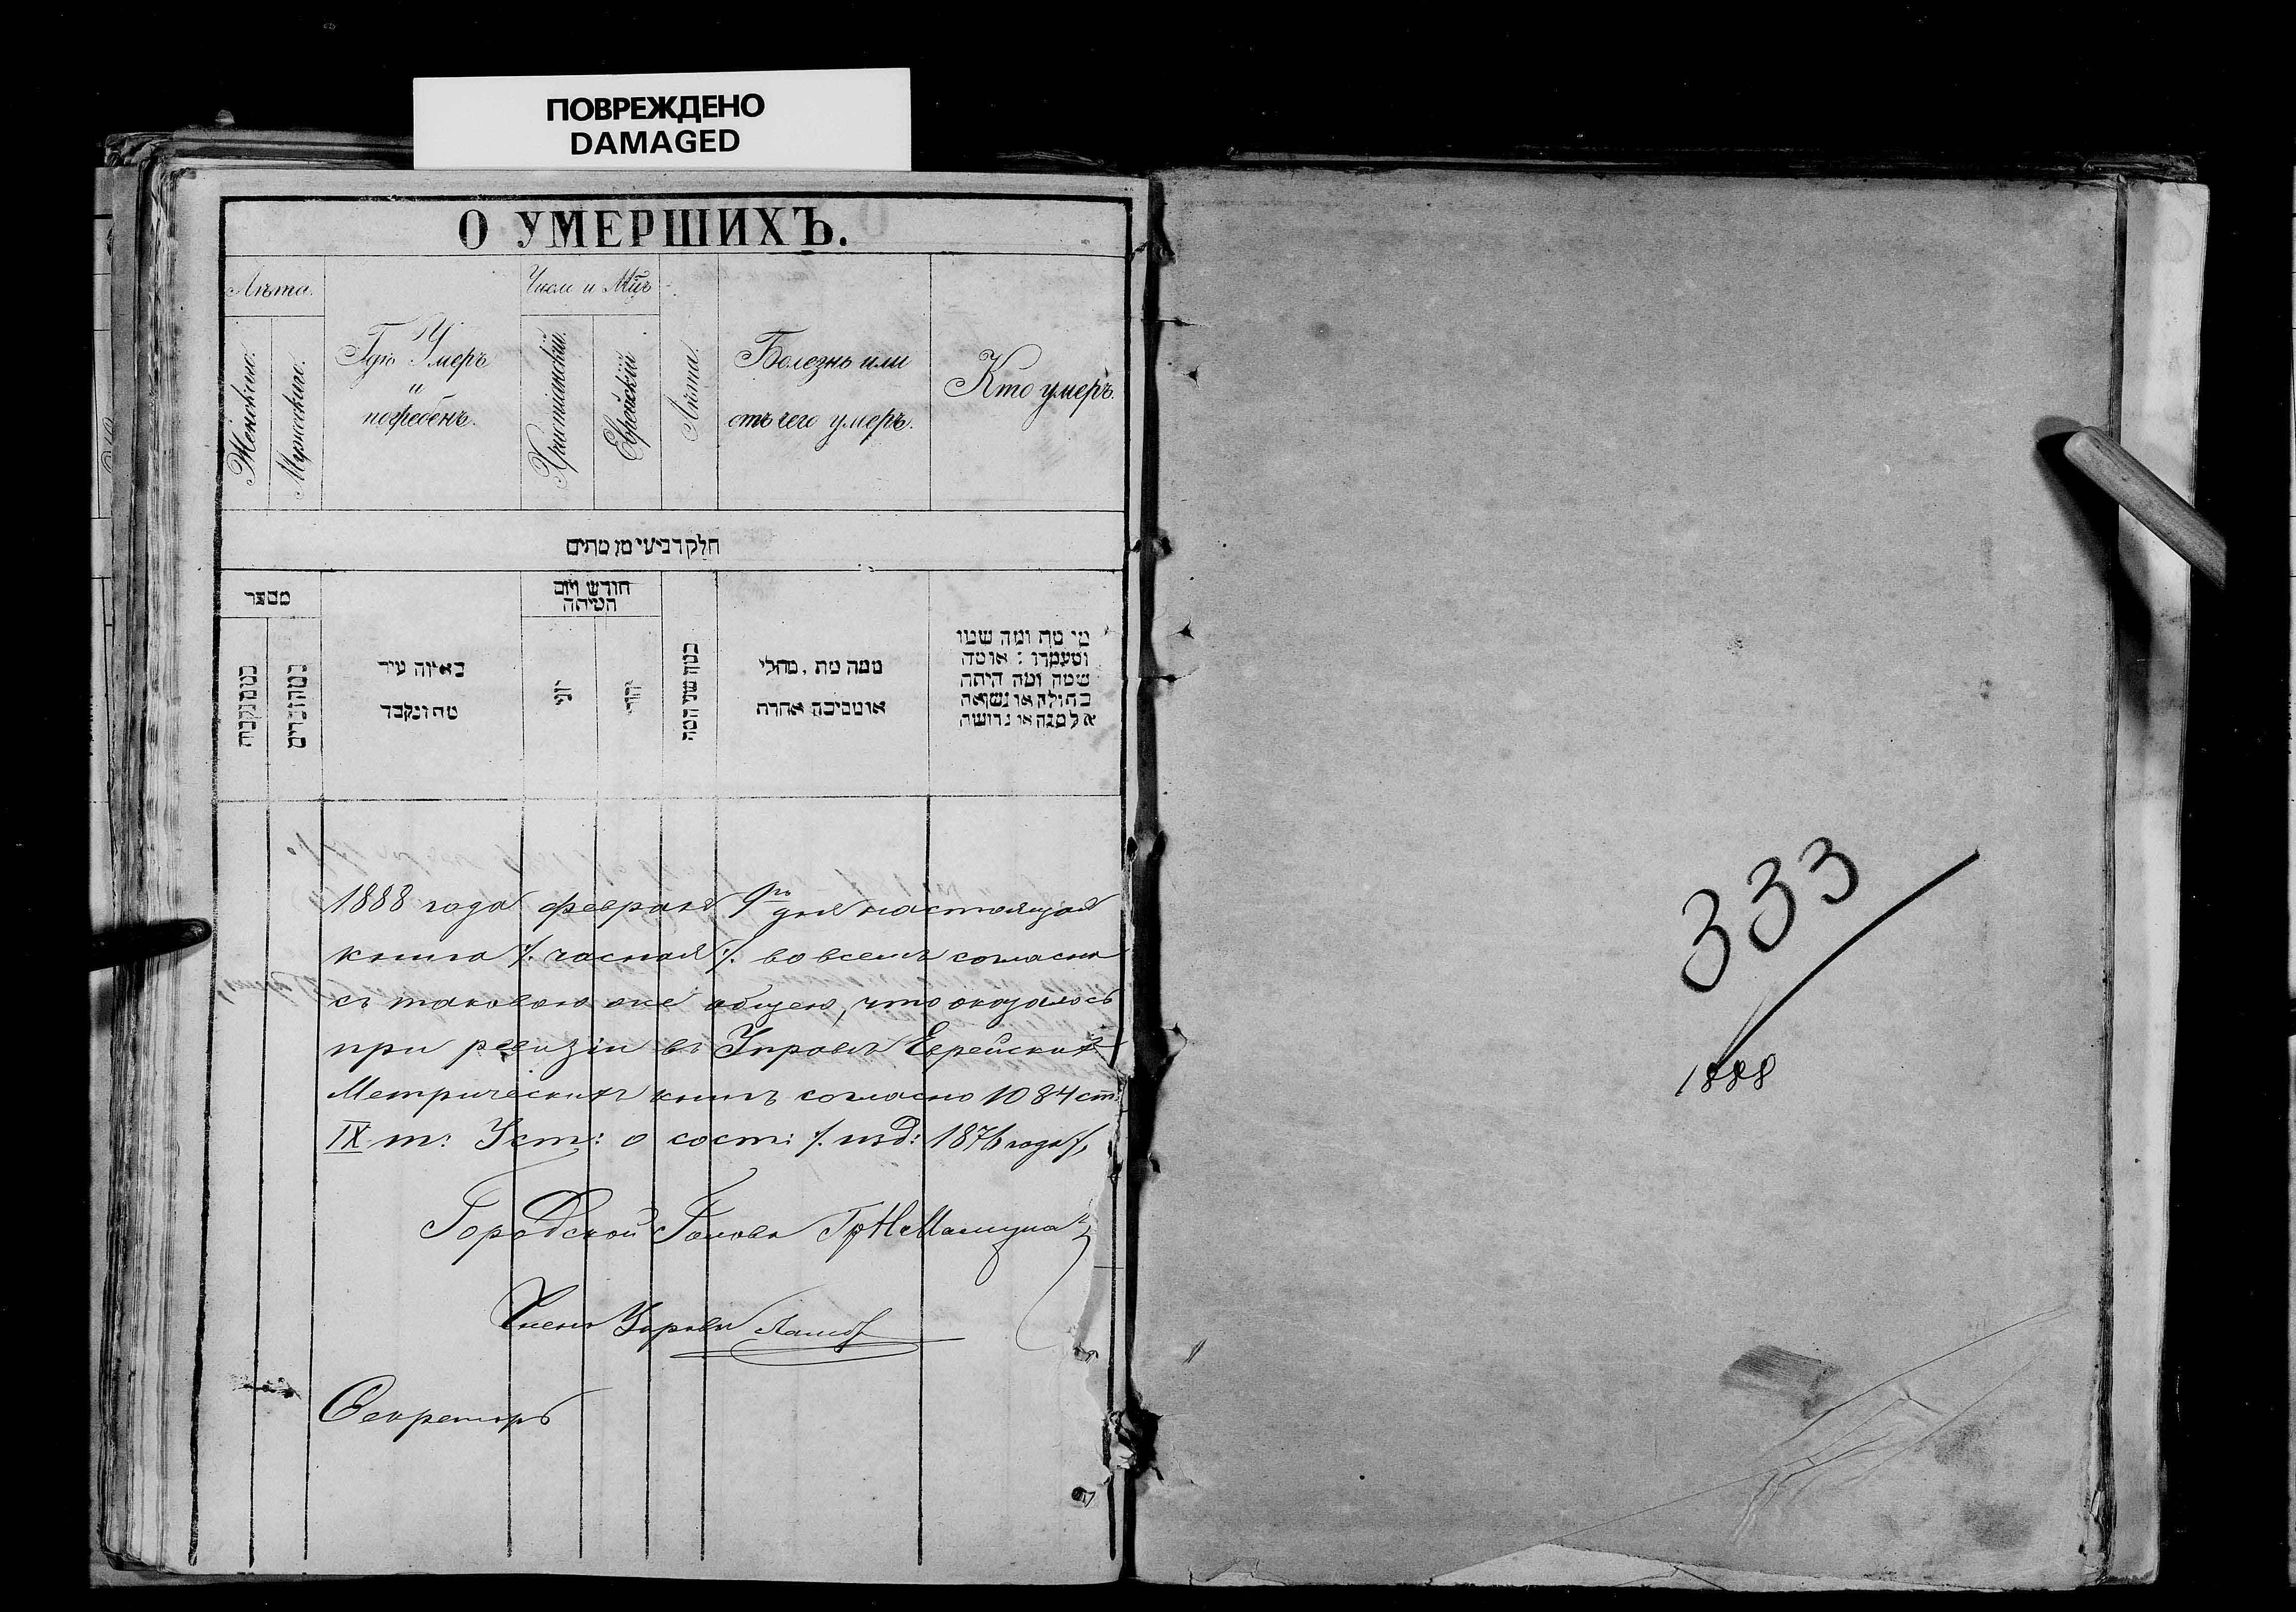 ПОВРЕЖДЕНО
DAMAGED
О УМЕРШИХЪ.
Лѣта.
Женскаго.
Мужескаго.
Гдѣ Умеръ
и
погребенъ.
Число и Мц̃ъ
Христіанскій.
Еврейскій
Лѣта.
Болезнь или
отъ чего умеръ.
Кто умеръ.
חלק רביעי מן מתים
מספר
חודש ויום
המיתה
באיזה עיר
מת ונקבר
ממה מת, מחלי
או מסיבה אחרת
מי מת ומה שמו
ומעמדו : או מה
שמה ומה היתה
בתולה או נשואה
אלמנה או גרושה
1888 года февраля 9го дня настоящая
книга ./. часная ./. во всемъ согласна
съ таковою же общею, что оказалось
при ревизіи въ Управѣ Еврейскихъ
Метрическихъ книгъ согласно 1084 ст:
IX т: Уст: о сост: ./. изд: 1876 года ./.
Городской Голова
Членъ Управы
Секретарь
333
1888